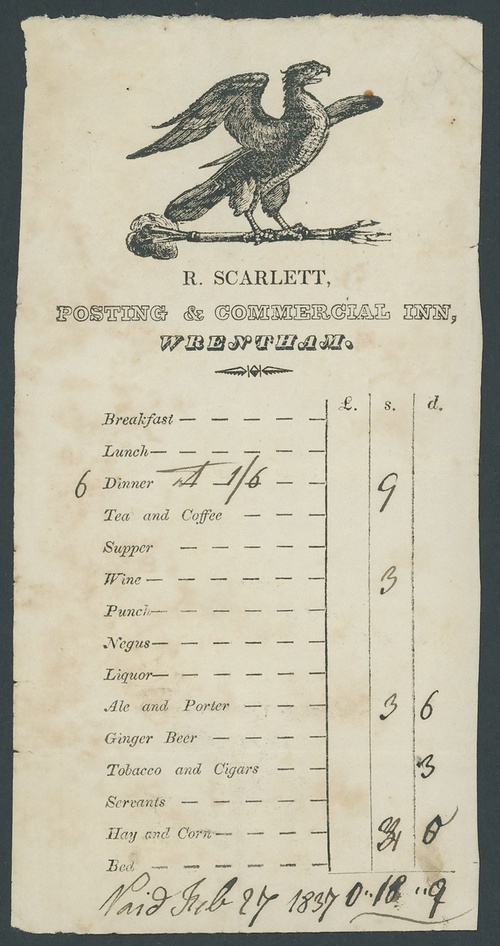 R. SCARLETT,
POSTING & COMMERCIAL INN,
WRENTHAM.
£. s. d.
Breakfast
Lunch
6 Dinner At 1/6 9
Tea and Coffee
Supper
Wine 3
Punch
Negus
Liquor
Ale and Porter 3 6
Ginger Beer
Tobacco and Cigars 3
Servants
Hay and Corn 0
Bed
Paid Feb 27 1837 0"18"9